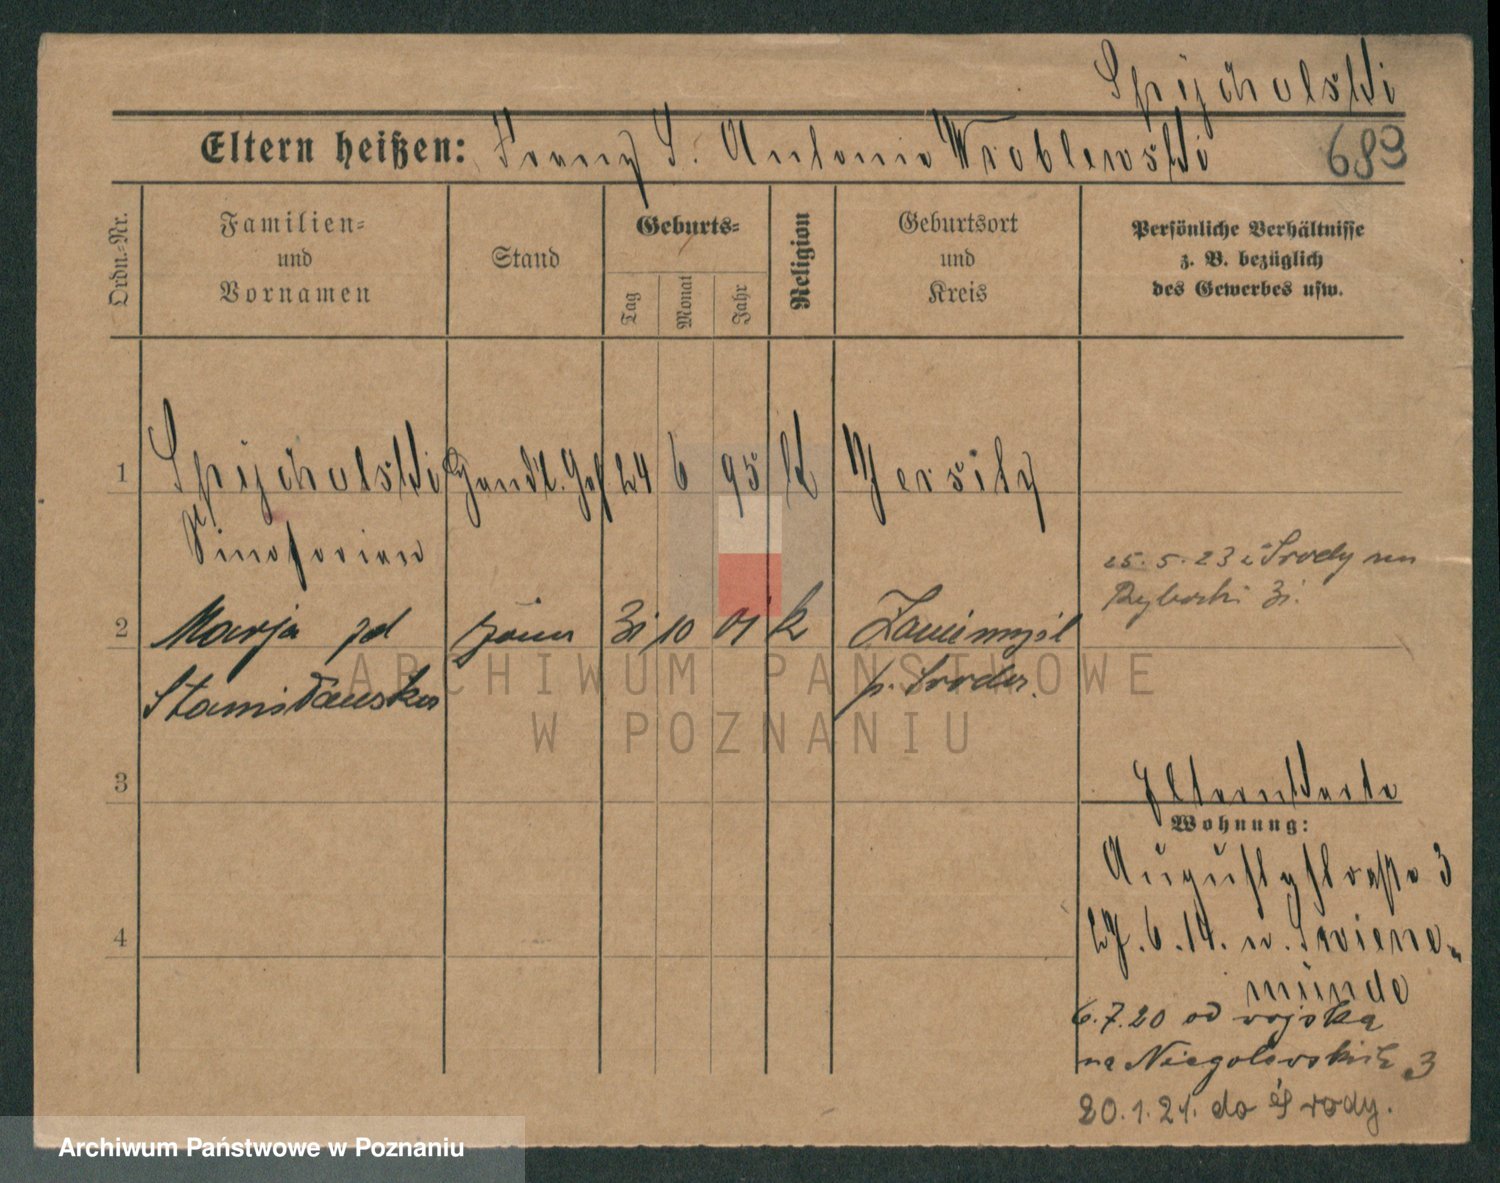 Spÿcholski
Eltern heißen: Franz S. Antonie Wroblewski
689
Ordn.-Nr.
Familien-
und
Vornamen
Stand
Geburts-
Tag
Monat
Jahr
Religion
Geburtsort
und
Kreis
Persönliche Verhältnisse
z. B. bezüglich
des Gewerbes usw.
1 Spÿcholski Handl. Geh 24 6 95 kt Jersitz
25.5.23 z Środy na
Rybacki 31.
2 Marja zd żona 31 10 01 k Zaniemyśl
Stanisławska p. Środa.
3
Elternkarte
Wohnung:
Augustystraße 3
4
27.6.14. n. Swiene-
münde
6.7.20 od wojska
na Niegolewskich 3
20.1.21. do Środy.
ARCHIWUM PAŃSTWOWE
W POZNANIU
Archiwum Państwowe w Poznaniu